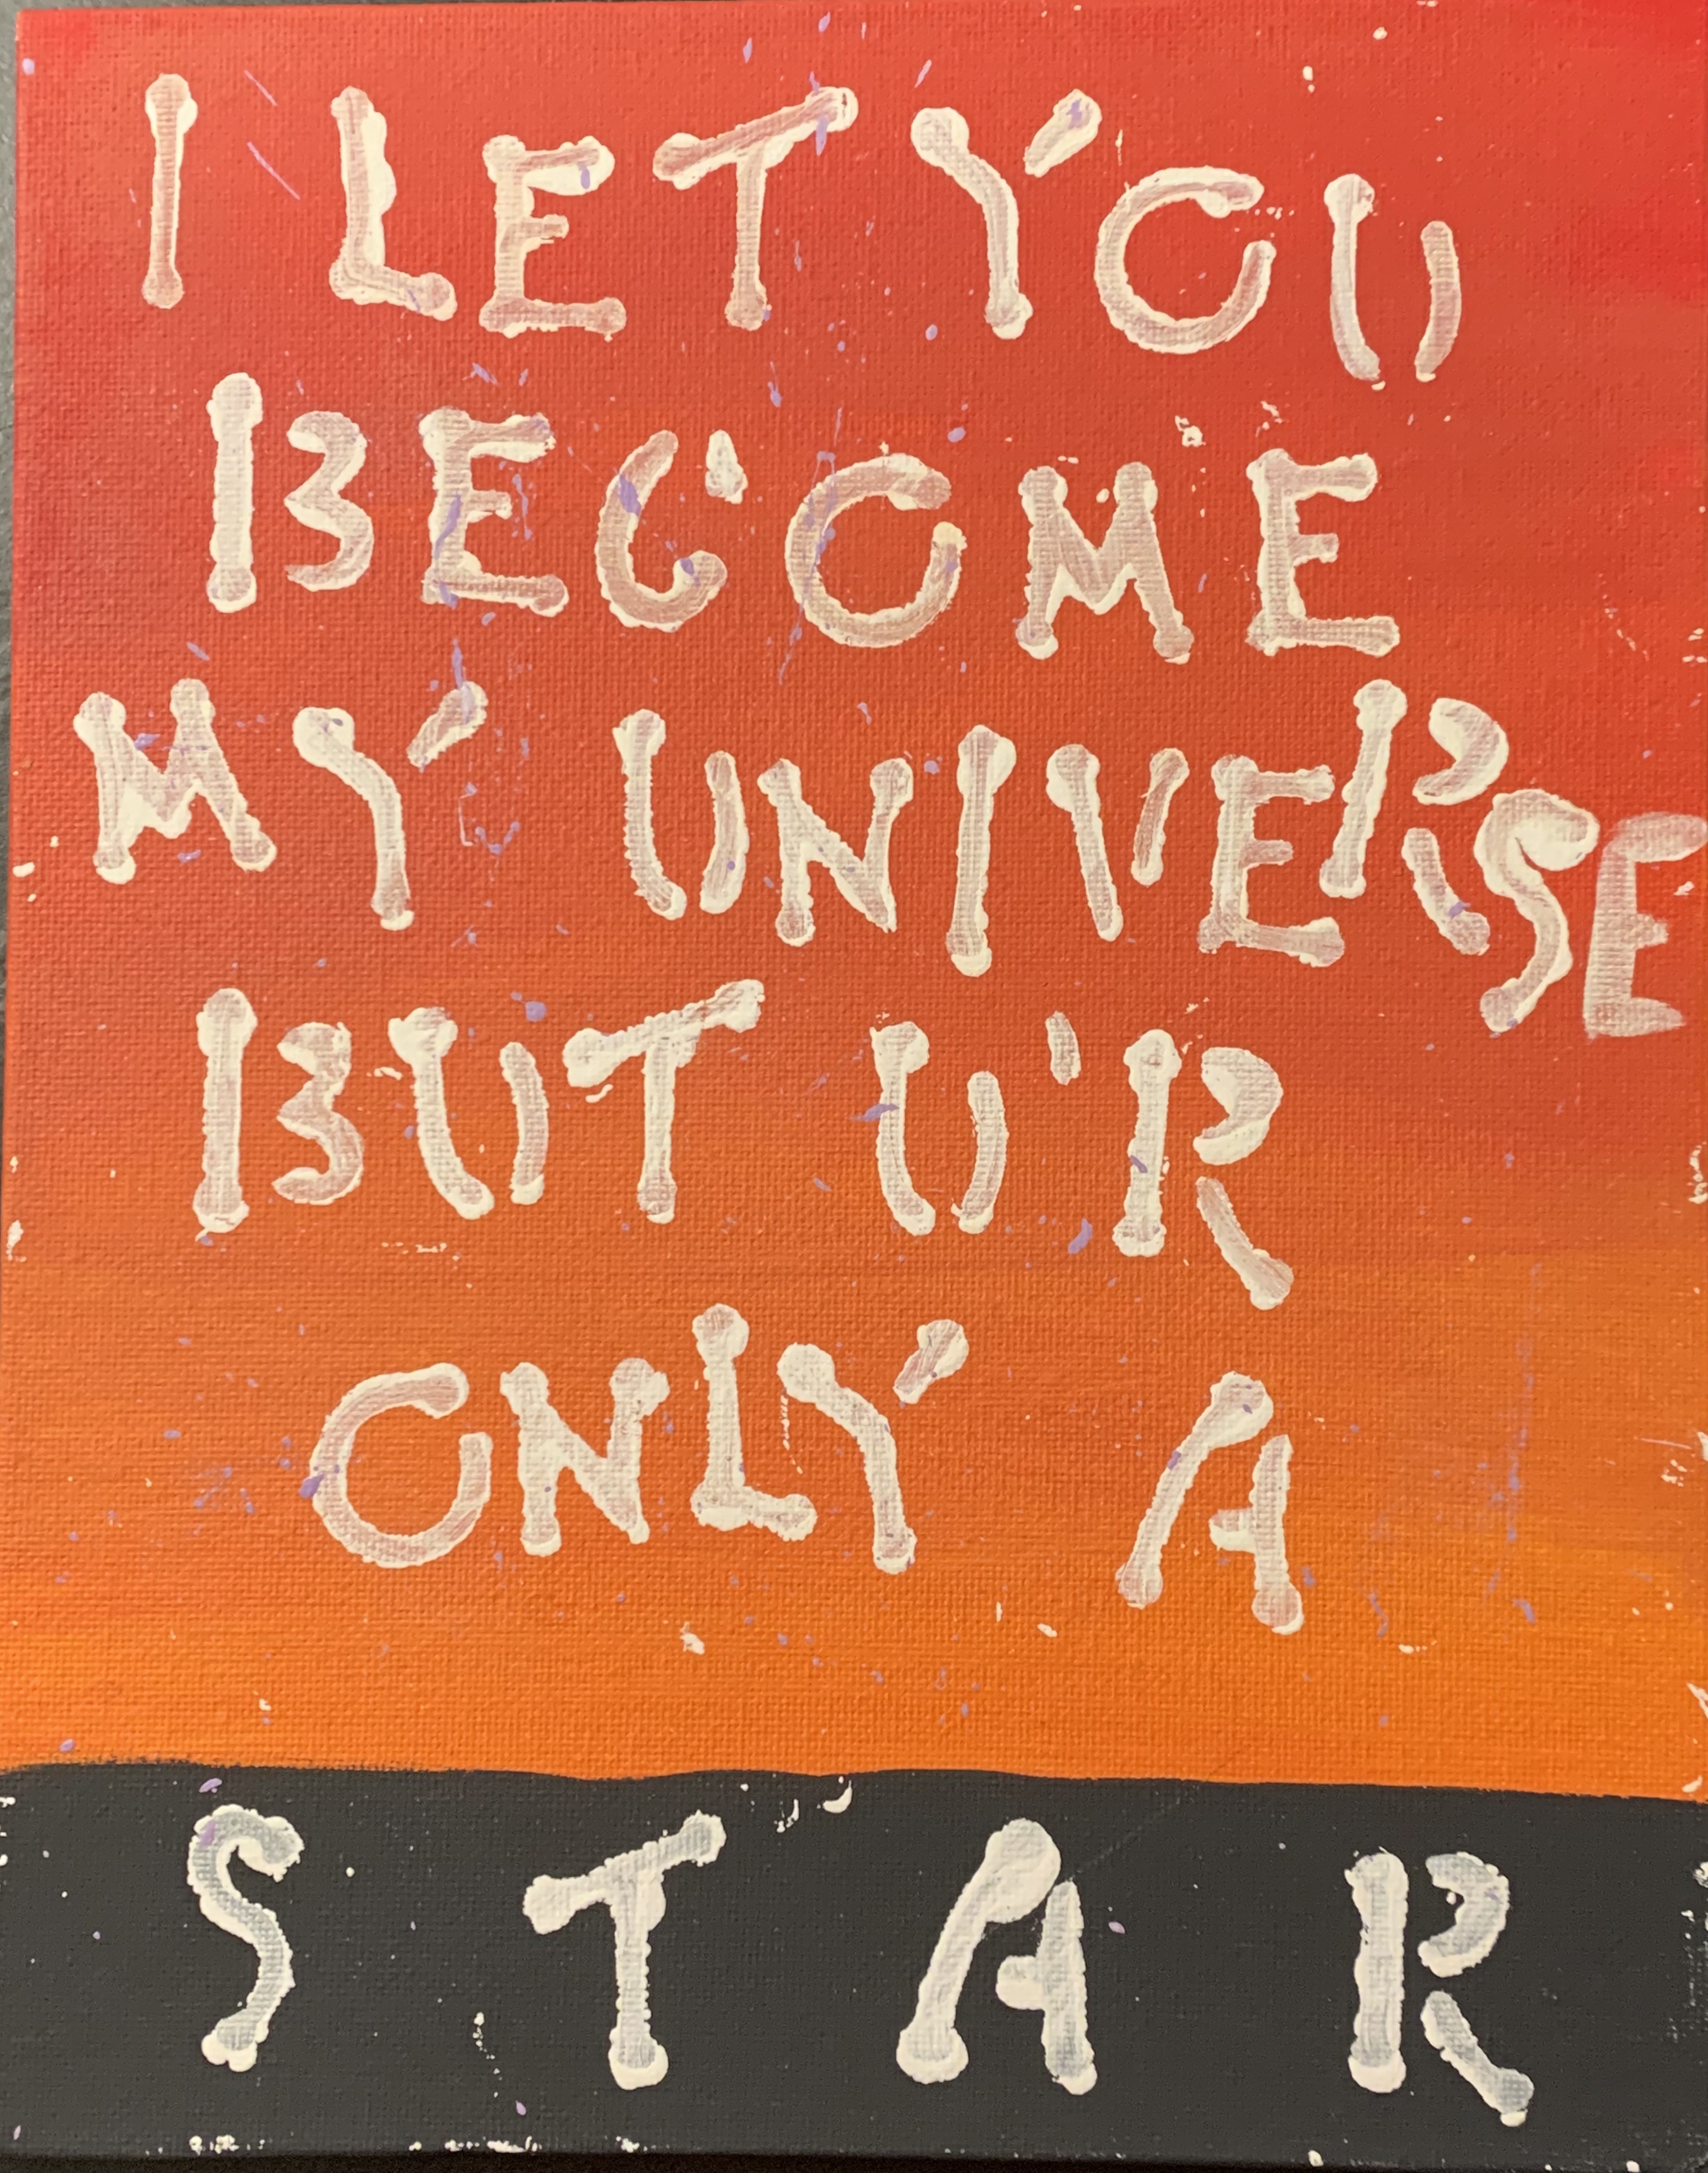 I LET YOU
BECOME
MY UNIVERSE
BUT U'R
ONLY A
STAR